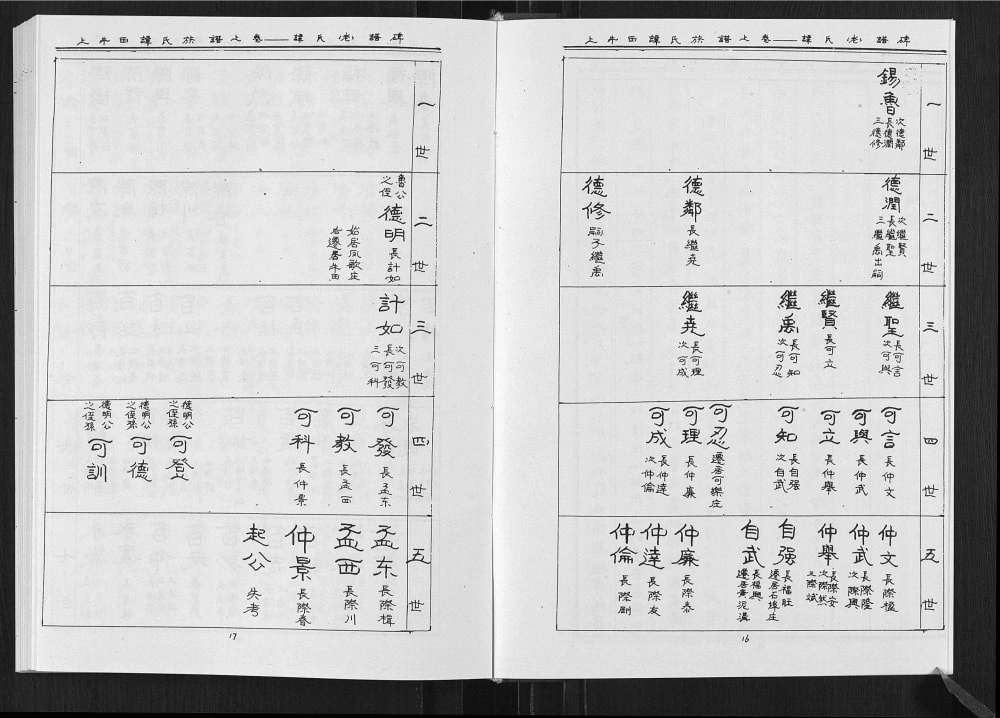 上牛田譚氏族譜上卷——譚氏(老)譜碑
一世
錫魯
長德潤
次德鄰
三德修
二世
德潤
長繼聖
次繼賢
三繼禹出嗣
德鄰
長繼堯
德修
嗣子繼禹
三世
繼聖
長可言
次可與
繼賢
長可立
繼禹
長可知
次可忍
繼堯
長可理
次可成
四世
可言
長仲文
可與
長仲武
可立
長仲舉
可知
長自強
次自武
可忍
遷居可樂庄
可理
長仲廉
可成
長仲達
次仲倫
五世
仲文
長際楹
仲武
長際隆
次際興
仲舉
長際安
次際然
三際斌
自强
長福旺
遷居石埠庄
自武
長福興
遷居黄泥溝
仲廉
長際泰
仲達
長際友
仲倫
長際剛
16
上牛田譚氏族譜上卷——譚氏(老)譜碑
一世
二世
魯公之侄
德明
長計如
始居凤歌庄
右遷居牛田
三世
計如
長可發
次可教
三可科
四世
可發
長孟东
可教
長孟西
可科
長仲景
德明公之侄孫
可登
德明公之侄孫
可德
德明公之侄孫
可訓
五世
孟东
長際楫
孟西
長際川
仲景
長際春
起公
失考
17